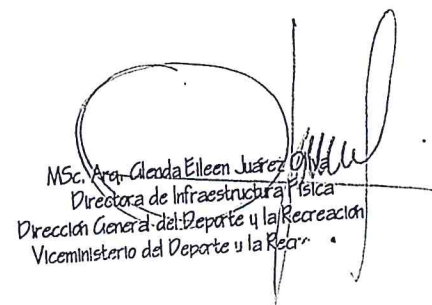 MSc. Arq. Glenda Eileen Juárez Oliva
Directora de Infraestructura Física
Dirección General del Deporte y la Recreación
Viceministerio del Deporte y la